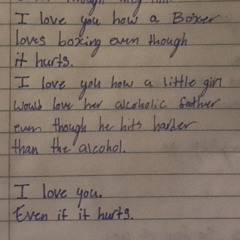 I love you how a Boxer
loves boxing even though
it hurts.
I love you how a little girl
would love her alcoholic father
even though he hits harder
than the alcohol.
I love you.
Even if it hurts.